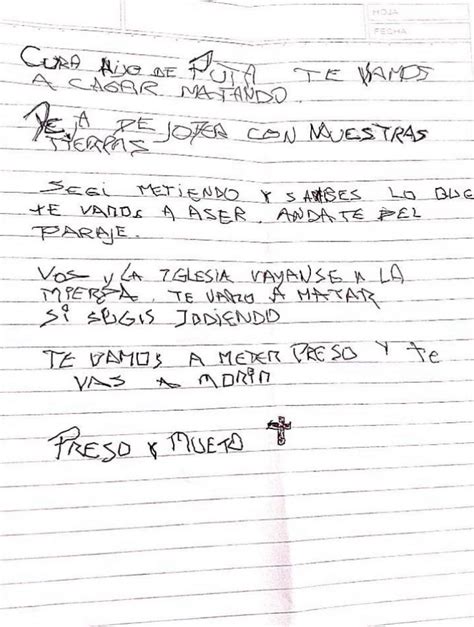 HOJA
FECHA
CURA HIJO DE PUTA TE VAMOS
A CAGAR MATANDO.
DEJA DE JODER CON NUESTRAS
TIERRAS
SEGI METIENDO Y SABES LO QUE
TE VAMOS A ASER. ANDATE DEL
PARAJE.
VOS Y LA IGLESIA VAYANSE A LA
MIERDA. TE VAMO A MATAR
SI SEGIS JODIENDO
TE VAMOS A METER PRESO Y te
VAS A MORIR
PRESO Y MUETO